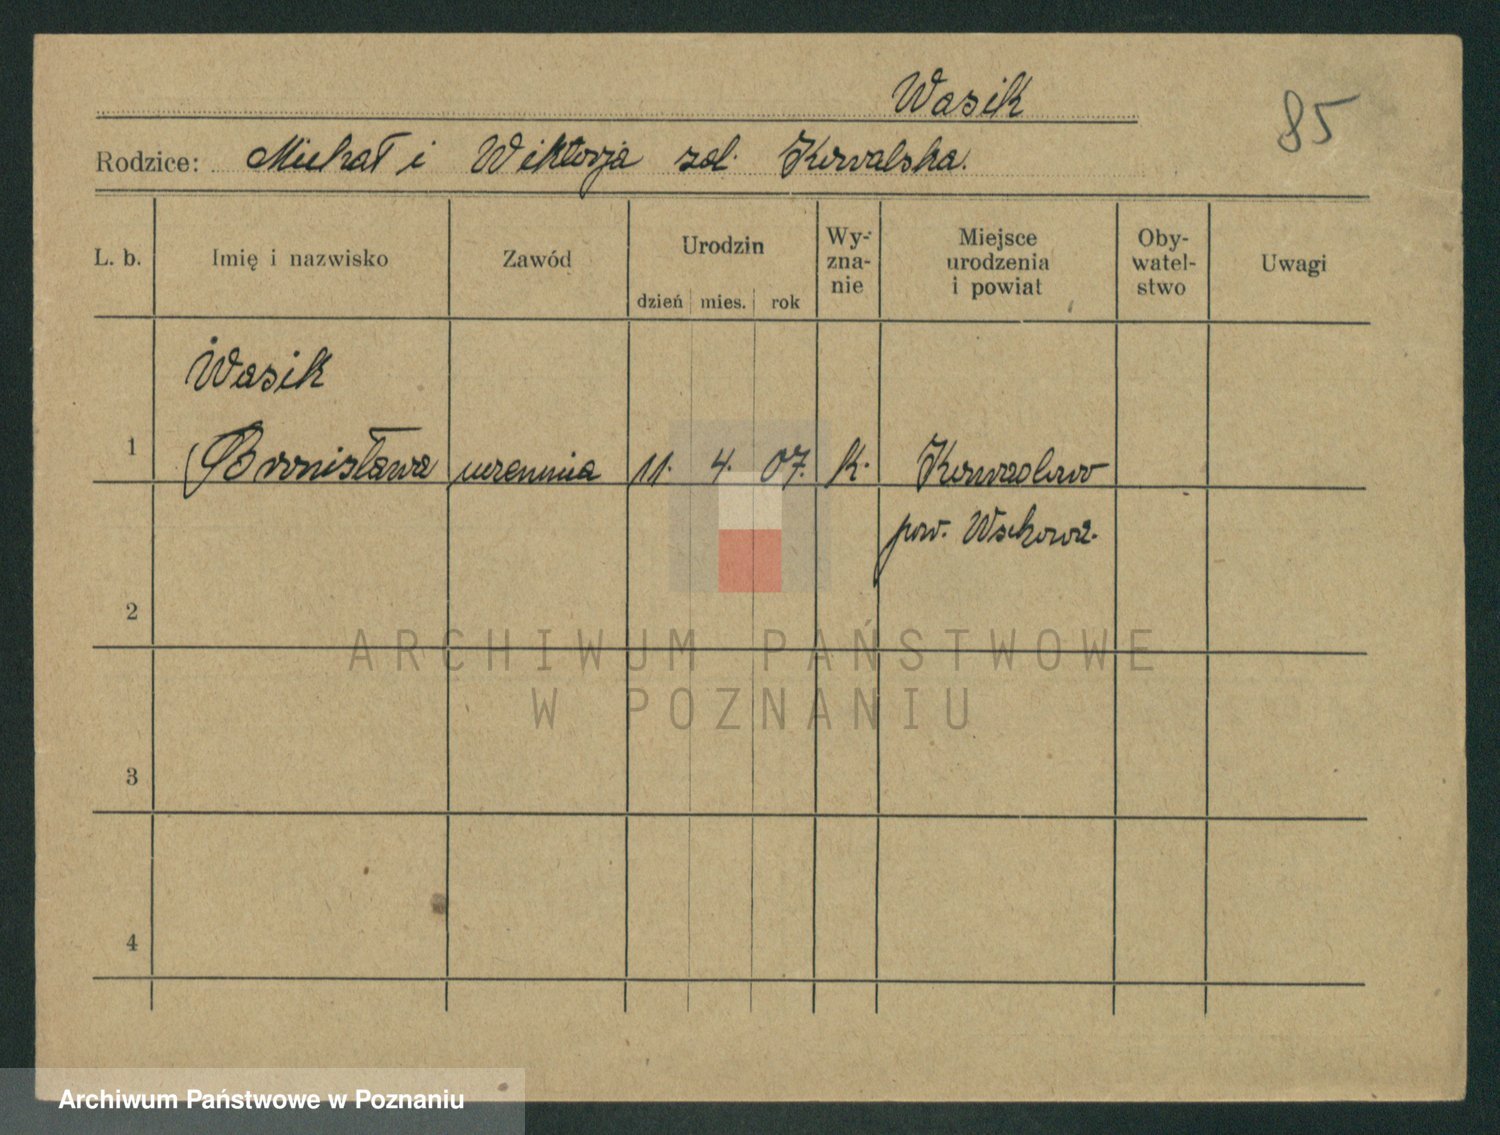 Wasik
85
Rodzice: Michał i Wiktorja zd. Kowalska.
L. b. Imię i nazwisko Zawód Urodzin dzień mies. rok Wy-zna-nie Miejsce urodzenia i powiat Oby-watel-stwo Uwagi
Wasik
1 Bronisława uczennica 11. 4. 07. k.
pow. Wschowa.
2
ARCHIWUM PAŃSTWOWE
W POZNANIU
3
4
Archiwum Państwowe w Poznaniu